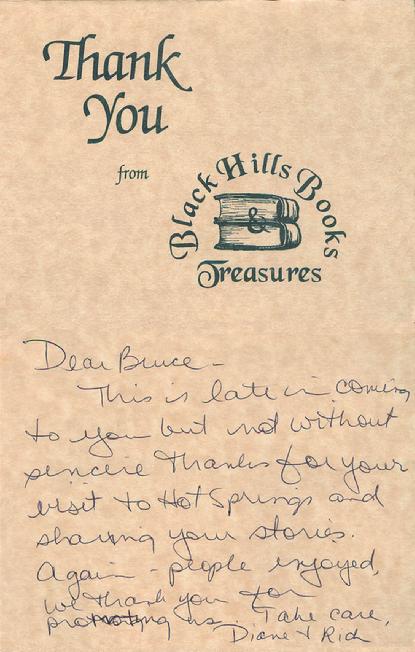 Thank
You
from
Black Hills Books
&
Treasures
Dear Bruce -
This is late in coming
to you but not without
sincere thanks for your
visit to Hot Springs and
sharing your stories.
Again - people enjoyed,
we thank you for
promoting us. Take care,
Diane & Rich